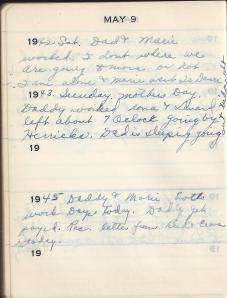 MAY 9
1942 Sat. Dad & Marie
worked. I dont where we
are going to move or not
Iva & Marie went to Dance
1943. Sunday, mothers Day.
Daddy worked
left about 7 Oclock going by
Herricks. Dad is sleeping
19
1945 Daddy & Marie both
work Days today. Daddy got
payed. Rec. letter from
today.
19